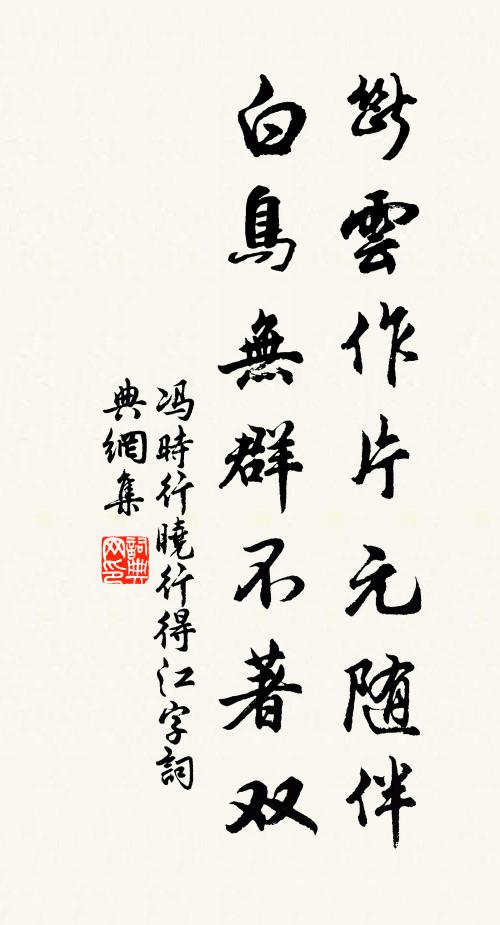 断雲作片元随伴
白鳥無群不著双
冯時行曉行得江字詞
典網集
詞典
网印